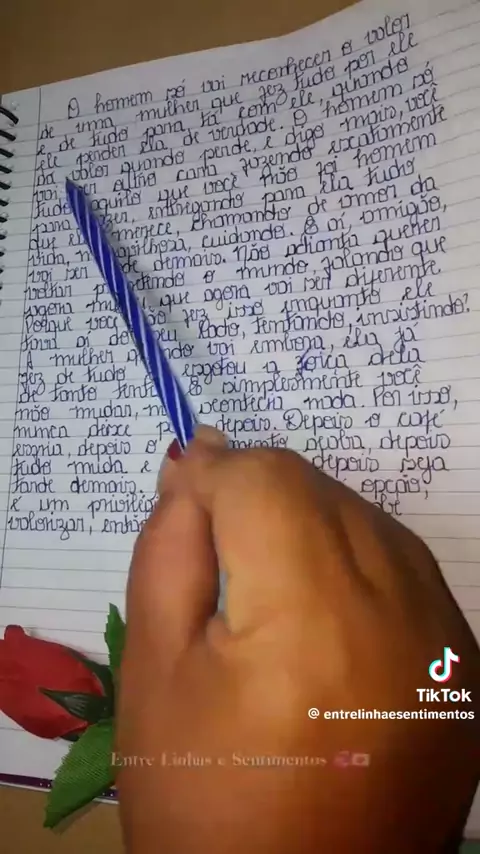 O homem só vai reconhecer o valor
de uma mulher que fez tudo por ele
e de tudo para tá com ele, quando
ele perder ela de verdade. O homem só
da valor quando perde, e digo mais, você
vai ver outro cara fazendo exatamente
tudo aquilo que você não foi homem
para fazer, entregando para ela tudo
que ela merece, chamando de amor da
vida, cuidando. E aí, amigão,
vai ser demais. Não adianta querer
voltar o mundo, falando que
agora que agora vai ser diferente.
Porque você não fez isso enquanto ele
tava ai do seu lado, tentando, insistindo?
A mulher quando vai embora, ela já
fez de tudo esgotou a força dela
de tanto simplesmente você
não mudar, aconteceu nada. Por isso,
nunca deixe depois. Depois o café
esfria, depois o acaba, depois
tudo muda e depois seja
tarde demais. opção,
é um
valorizar,
TikTok
@ entrelinhaesentimentos
Entre Linhas e Sentimentos